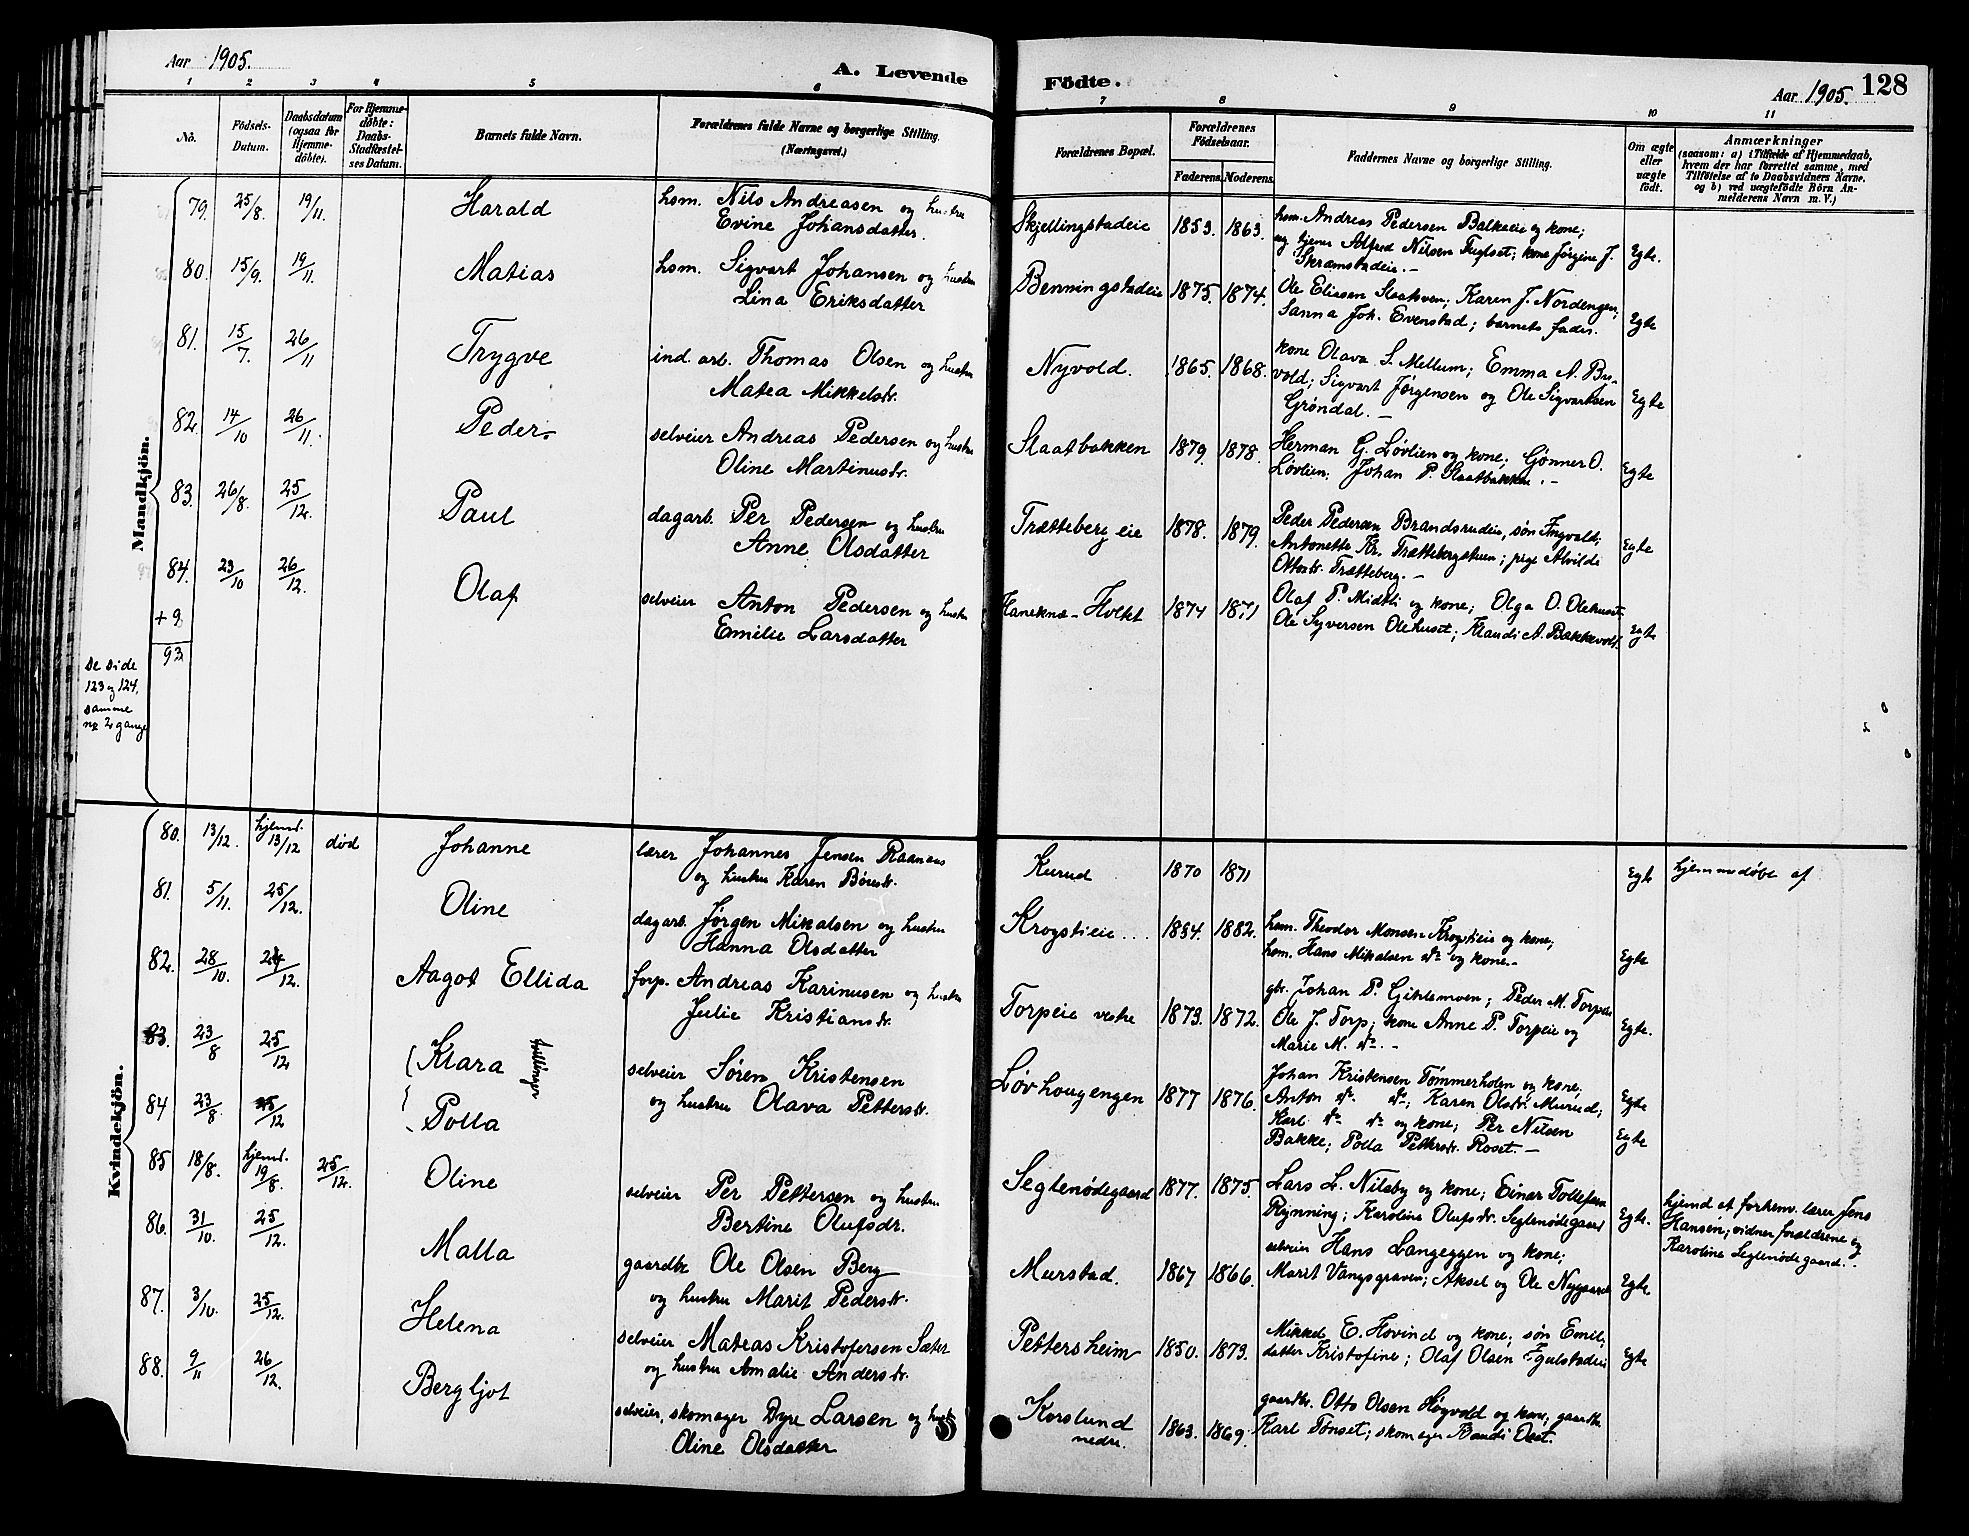 Aar 1905.
A. Levende
Födte.
Aar 1905. 128
1 2 3 4 5 6 7 8 9 10 11
No.
Födsels-Datum.
Daabsdatum (ogsaa for Hjemme-döbte).
For Hjemme-döbte: Daabs-Stadfæstel-ses Datum.
Barnets fulde Navn.
Forældrenes fulde Navne og borgerlige Stilling.
(Næringsvei.)
Forældrenes Bopæl.
Forældrenes Födselsaar.
Faderens. Moderens.
Faddernes Navne og borgerlige Stilling.
Om ægte eller uægte født.
Anmærkninger
(saasom: a) i Tilfælde af Hjemmedaab, hvem der har forrettet samme, med Tilföielse af to Daabsvidners Navne, og b) ved uægtefödte Börn Anmelderens Navn m. V.)
Mandkjön.
79. 25/8. 19/11. Harald
hsm. Nils Andreasen og hustru
Evine Johansdatter.
Skjellingstadeie 1853. 1863.
hsm. Andreas Pedersen Balkeeie og kone;
og tjener Alfred Nilsen Fuglset; kone Jørgine J.
Skramstadeie. – Egte.
80. 15/9. 19/11. Matias
hsm. Sigvart Johansen og hustru
Lina Eriksdatter
Benningstadeie 1875. 1874.
Ole Eliasen Slaatsven; Karen J. Nordengen;
Sanna Joh. Evenstad; barnets fader. Egte
81. 15/7. 26/11 Trygve
ind. arb. Thomas Olsen og hustru
Matea Mikkelsdr.
Nyvold. 1865. 1868.
kone Olava S. Mellum; Emma A. Bro-
vold; Sigvart Jørgensen og Ole Sigvartsen
Grøndal. – Egte
82. 14/10 26/11. Peder.
selveier Andreas Pedersen og hustru
Oline Martinusdr.
Slaatbakken 1879. 1878.
Herman G. Løvlien og kone; Gønner O.
Løvlien; Johan P. Slaatbakken. – Egte
83. 26/8. 25/12. Paul
dagarb. Per Pedersen og hustru
Anne Olsdatter
Trætteberg eie 1878. 1879.
Peder Pedersen Brandsrudeie, søn Ingvald;
Antonette Kr. Trættebergstuen; pige Alvilde
Ottosdr. Trætteberg. – Egte
84. 23/10 26/12. Olaf
selveier Anton Pedersen og hustru
Emilie Larsdatter
Haneknæ-Holtet 1874 1871
Olaf P. Midtli og kone; Olga O. Olehuset
Ole Syversen Olehuset; Klaudi A. Bakkevold. Egte
+ 9
93
se side
123 og 124,
samme
nr 2 gange
Kvindekjön.
80. 13/12. hjemd. 13/12 død Johanne
lærer Johannes Jensen Raanaas
og hustru Karen Børresdr.
Kurud 1870 1871 Egte hjemmedøbt af
81. 5/11. 25/12. Oline
dagarb. Jørgen Mikalsen og hustru
Hanna Olsdatter
Krogstieie ... 1884. 1882.
hsm. Theodor Monsen Krogstieie og kone;
hsm. Hans Mikalsen do og kone. – Egte
82. 28/10. 24/12. Aagot Ellida
forp. Andreas Karinusen og hustru
Julie Kristiansdr.
Torpeie vestre 1873. 1872.
gbr. Johan P. Gihlemoen; Peder M. Torpeie
Ole J. Torp; kone Anne P. Torpeie og
Marie M. do. – Egte.
83. 23/8 25/12 Klara
tvillinger
84 23/8. 25/12 Polla
selveier Søren Kristensen
og hustru Olava Pettersdr.
Løvhougengen 1877 1876.
Johan Kristensen Tømmerholen og kone;
Anton do do; Karen Olsdr. Murud;
Karl do do og kone; Per Nilsen
Bakke; Polla Pettersdr. Roset. –
Egte
Egte
85 18/8. hjemd. 19/8. 25/12. Oline
selveier Per Pettersen og hustru
Bertine Olufsdr.
Seglenødegaard 1877. 1875.
Lars L. Nilsby og kone; Einar Tollefsen
Rynning; Karoline Olufsdr. Seglenødegaard Egte.
hjemd af forhenv. lærer Jens
Hansen; vidner forældrene og
Karoline Seglenødegaard. –
86. 31/10. 25/12. Malla
gaardbr Ole Olsen Berg
og hustru Marit Pedersdr.
Meerstad. 1867 1866.
selveier Hans Langeggen og kone;
Marit Vangsgraven; Aksel og Ole Nygaard Egte
87. 3/10. 25/12. Helena
selveier Matias Kristofersen Sæter
og hustru Amalie Andersdr.
Pettersheim 1850. 1873.
Mikkel E. Hovind og kone; søn Emil;
datter Kristofine; Olaf Olsen Igelstadeie Egte
88. 9/11 26/12. Bergljot
selveier, skomager Dyre Larsen og hustr
Oline Olsdatter
Korslund
nedre. 1863. 1869.
gaardbr. Otto Olsen Høgvold og kone; gaardbr
Karl Tønset; skomager Bendi Oset.